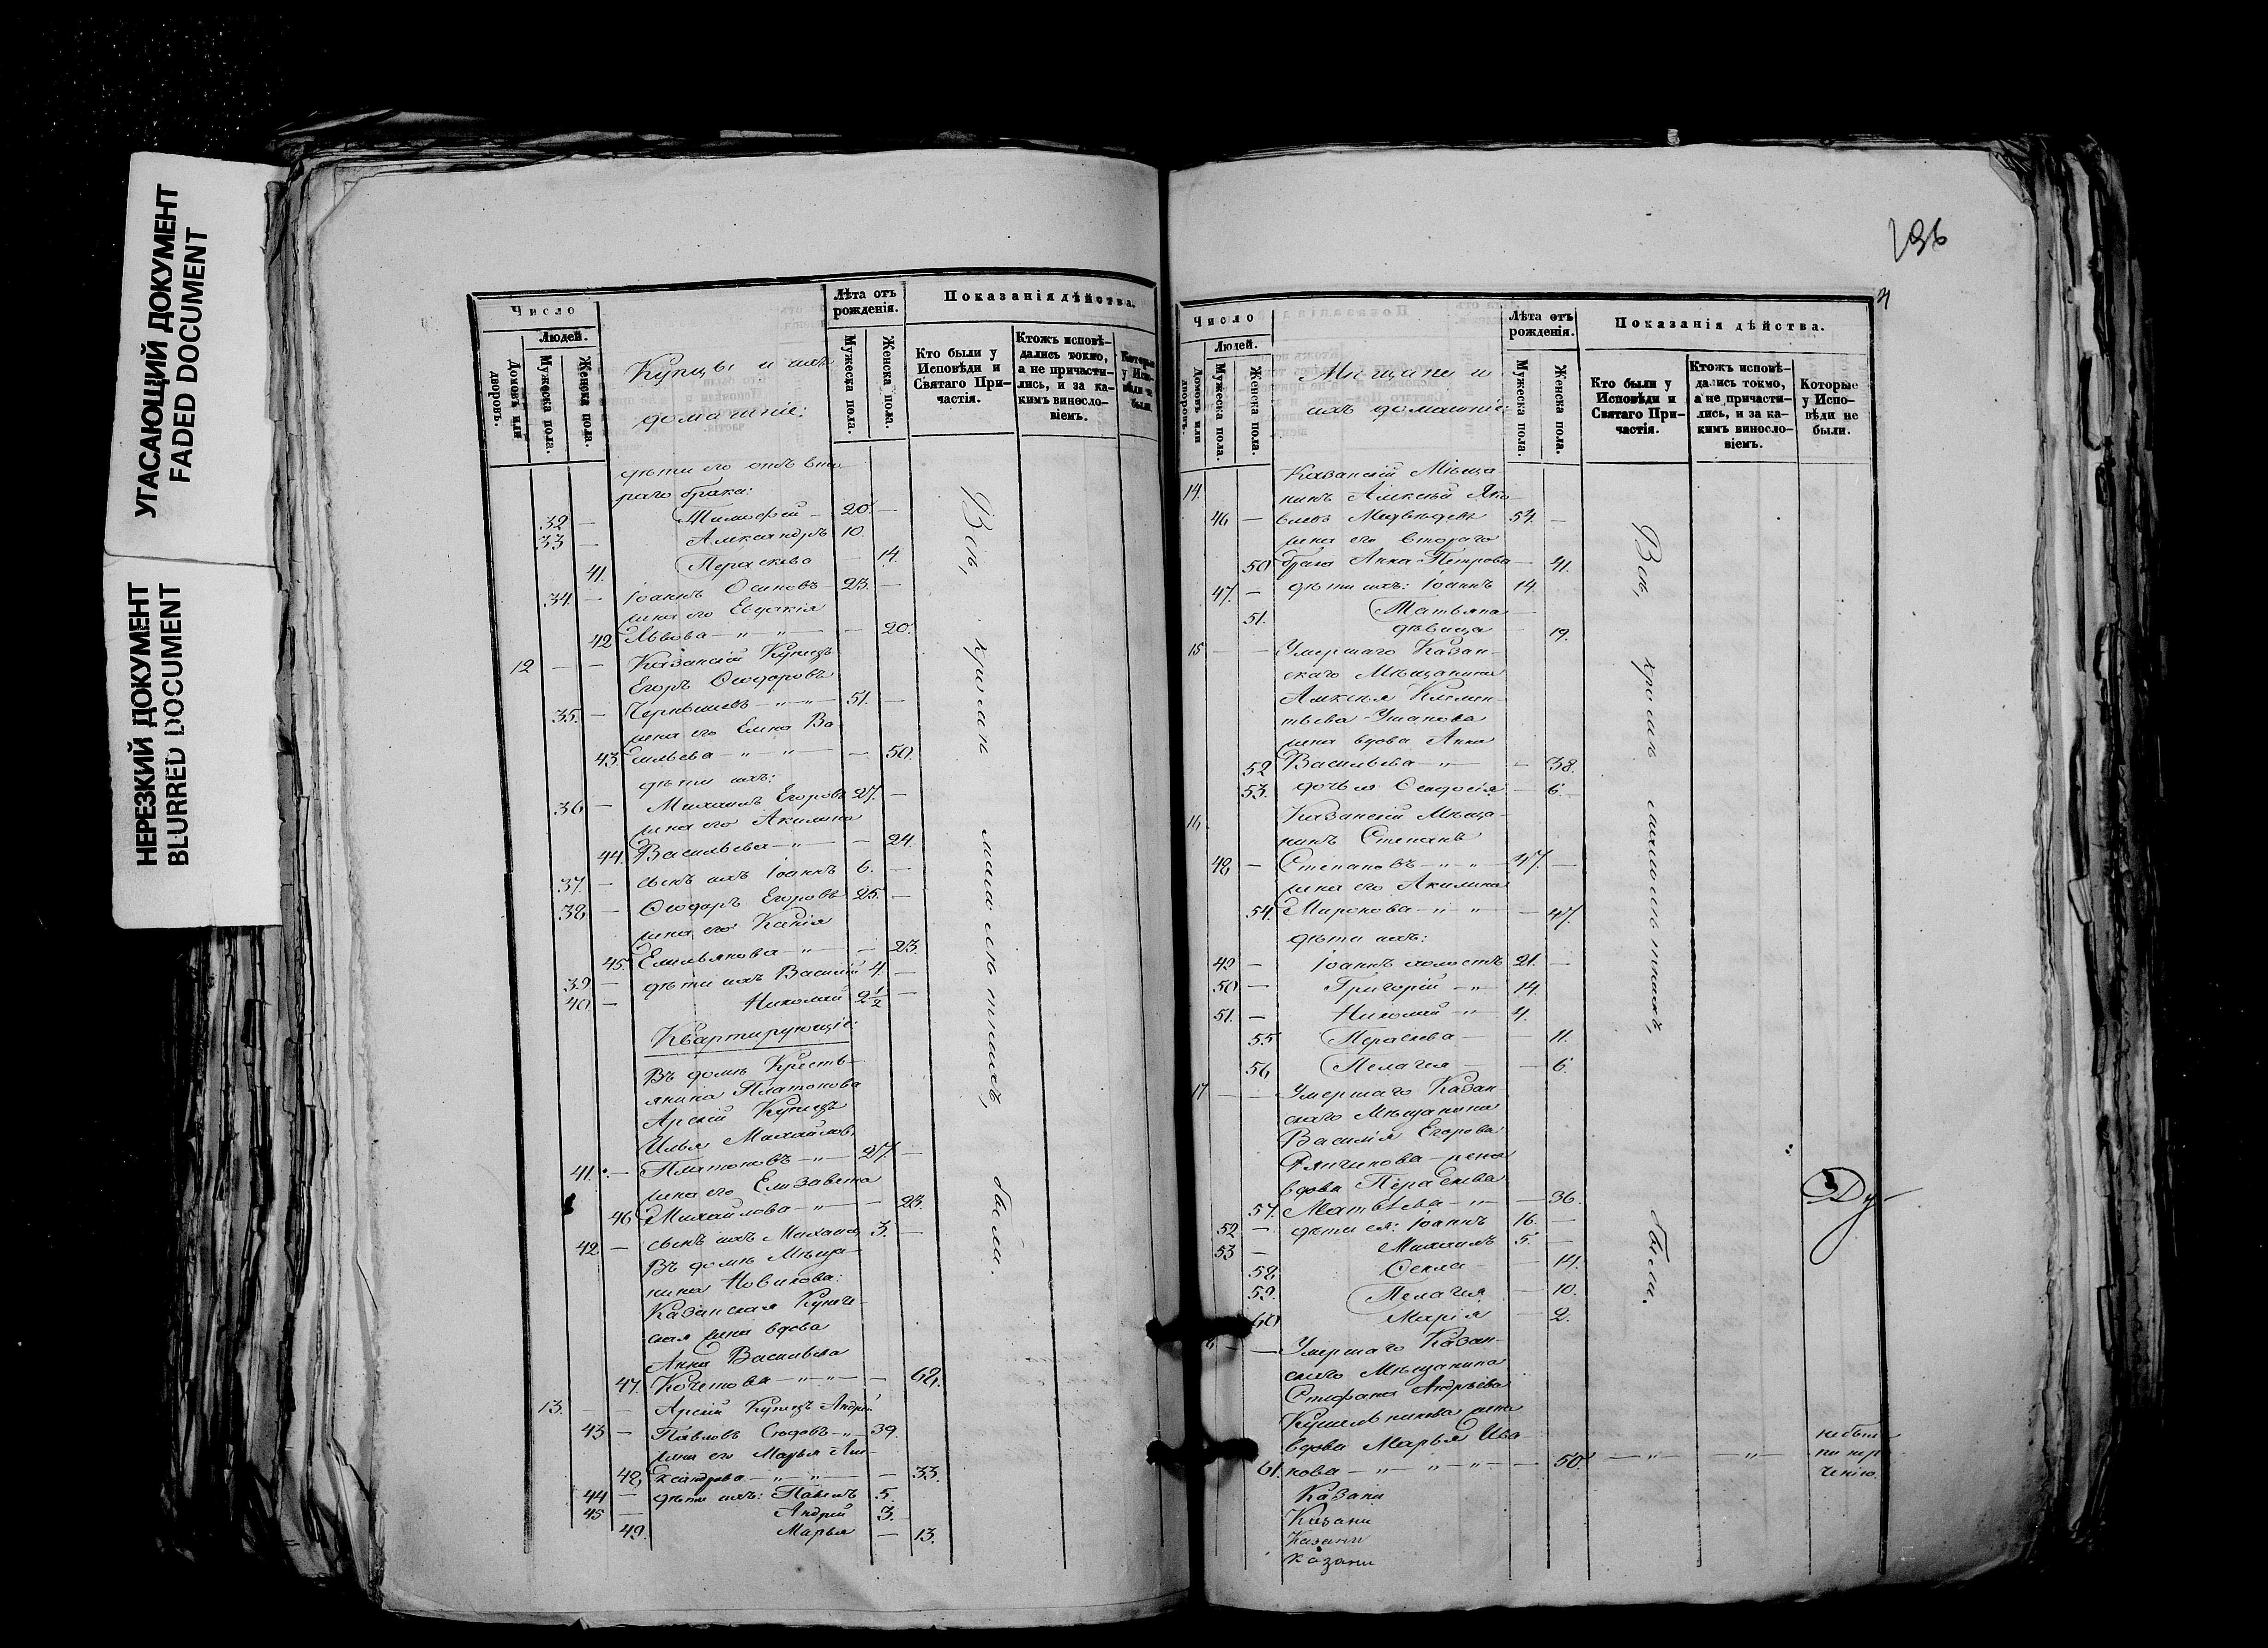 УГАСАЮЩИЙ ДОКУМЕНТ
FADED DOCUMENT
НЕРЕЗКИЙ ДОКУМЕНТ
BLURRED DOCUMENT
Число
Людей.
Домовъ или дворовъ.
Мужеска пола.
Женска пола.
Купцы и ихъ
домашніе:
Лѣта отъ рожденія.
Мужеска пола.
Женска пола.
Показанія дѣйства.
Кто были у Исповѣди и Святаго При-
частія.
Ктожъ исповѣ-
дались токмо,
а не причасти-
лись, и за ка-
кимъ винosло-
віемъ.
Которые
у Испо-
вѣди не
были.
дѣти его отъ вто-
раго брака:
32 — Тимофей — 20. —
33 — Александръ 10.
41. Параскева — 14.
34. — Іоаннъ Осиповъ 23. —
жена его Евдокія
42 Львова — " — " — — 20.
12 — — Казанскій Купецъ
Егоръ Ѳеодоровъ
35. — Чернышевъ — " — " — 51. —
жена его Елена Ва
43. сильева — " — " — — 50.
дѣти ихъ:
36 — Михаилъ Егоровъ 27. —
жена его Акилина
44. Васильева — " — — 24.
37. — сынъ ихъ Іоаннъ 6. —
38 — Ѳеодоръ Егоровъ 25. —
жена его Ксенія
45. Емельянова — " — — 23.
39 — дѣти ихъ Василій 4. —
40 — Николай 2 1/2 —
Квартирующіе:
Въ домѣ Кресть-
янина Платонова
Арскій Купецъ
Илья Михайловъ
41. — Платоновъ — " — 27. —
жена его Елизавета
46 Михайлова — " — — 23.
42 — сынъ ихъ Михаилъ 3. —
Въ домѣ Мѣща-
нина Новикова:
Казанская Купече-
ская жена вдова
Анна Васильева
47. Кочетова — " — " — — 68.
13. — — Арскій Купецъ Андрей
43 — Павловъ — " — 39.
жена его Марья Але-
48 ксандрова — " — " — — 33.
44 — дѣти ихъ: Павелъ 5.
45 — Андрей 3.
49. Марья — 13.
Всѣ, кромѣ малолѣтнихъ, были.
136
Число
Людей.
Домовъ или дворовъ.
Мужеска пола.
Женска пола.
Мѣщане и
ихъ домашніе:
Лѣта отъ рожденія.
Мужеска пола.
Женска пола.
Показанія дѣйства.
Кто были у Исповѣди и Святаго При-
частія.
Ктожъ исповѣ-
дались токмо,
а не причасти-
лись, и за ка-
кимъ винosло-
віемъ.
Которые
у Испо-
вѣди не
были.
14. Казанскій Мѣща-
нинъ Алексѣй Яко-
46 — влевъ Медвѣдевъ 54. —
жена его втораго
50 брака Анна Петрова — 41.
47. — дѣти ихъ: Іоаннъ 14.
51. Татьяна —
дѣвица — 19.
15 — — Умершаго Казан-
скаго Мѣщанина
Алексѣя Клемен-
тьева Ушакова
жена вдова Анна
52 Васильева — " — — 38.
53. дочь ея Ѳеодосія — 6. —
16. Казанскій Мѣща-
нинъ Степанъ
48 — Степановъ — " — " — 47. —
жена его Акилина
54. Миронова — " — " — — 47.
дѣти ихъ:
49 — Іоаннъ холостъ 21. —
50 — Григорій — " — 14.
51. — Николай — " — 4.
55 Параскева — — 11.
56 Пелагея — — 6.
17 — — Умершаго Казан-
скаго Мѣщанина
Василія Егорова
жена
вдова Параскева
57. Матвѣева — " — — 36.
52 — дѣти ея: Іоаннъ 16. —
53 — Михаилъ 5. —
58 Ѳекла — — 14.
59. Пелагея — 10.
60 Марія — 2.
— — Умершаго Казан-
скаго Мѣщанина
Стефана Андреева
жена
вдова Марья Ива-
61. нова — " — " — " — — 50. — " — — " — не были
Казани
Казани
Казани
Казани
Всѣ, кромѣ малолѣтнихъ, были.